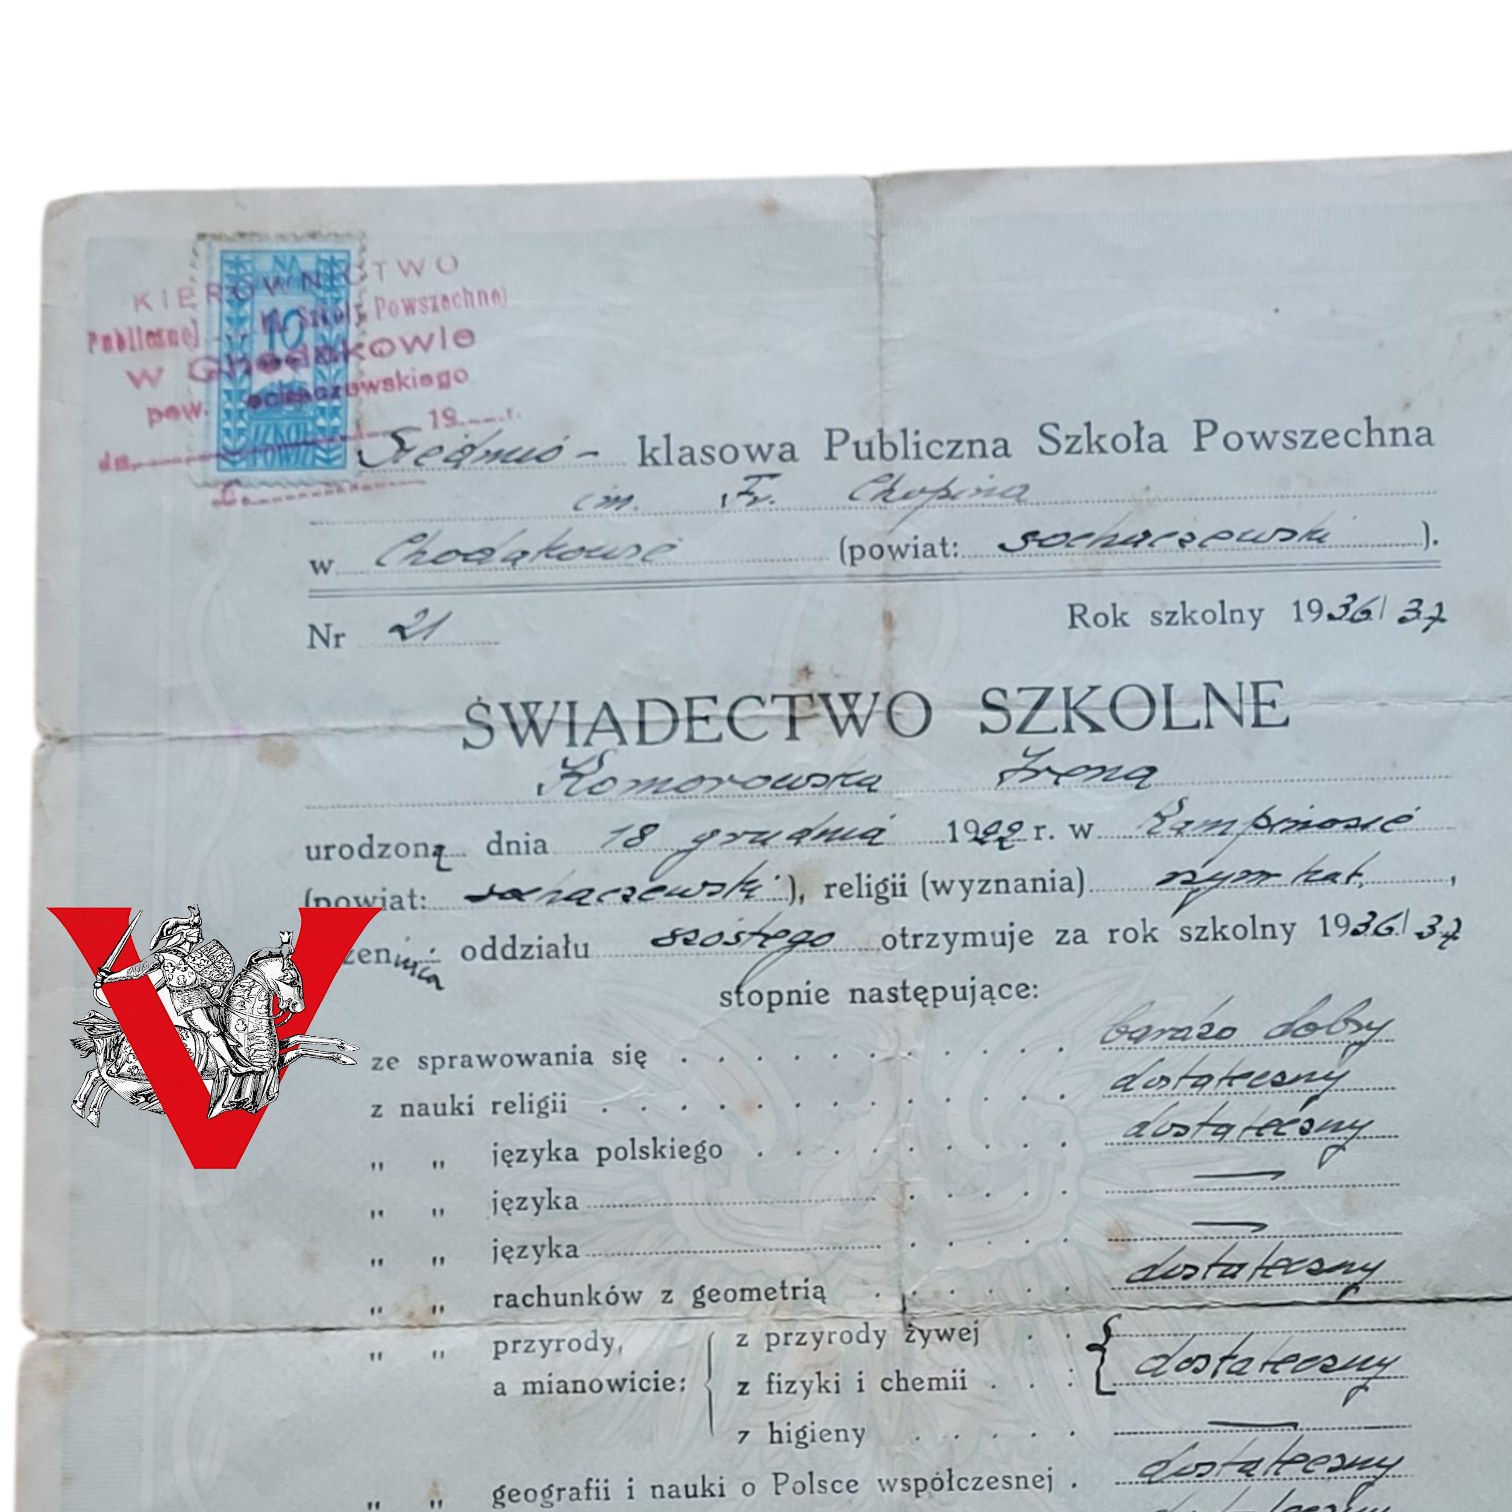 NA
10
KIEROWNICTWO
Publicznej kl. Szkoły Powszechnej
w Chodakowie
pow. Sochaczewskiego
dn. 19 r.
L.
Siedmio- klasowa Publiczna Szkoła Powszechna
im. Fr. Chopina
w Chodakowie (powiat: sochaczewski ).
Nr 21 Rok szkolny 1936/37
ŚWIADECTWO SZKOLNE
Komorowska Irena
urodzona dnia 18 grudnia 1922 r. w Kampinosie
(powiat: sochaczewski ), religii (wyznania) rzym kat. ,
zennica oddziału szóstego otrzymuje za rok szkolny 1936/37
stopnie następujące:
ze sprawowania się . . . . . . . . . . . bardzo dobry
z nauki religii . . . . . . . . . . . . dostateczny
„ „ języka polskiego . . . . . . . . dostateczny
„ „ języka . . . . —
„ „ języka . . . . —
„ „ rachunków z geometrią . . . . . dostateczny
„ „ przyrody, { z przyrody żywej . . {
a mianowicie: z fizyki i chemii . . : dostateczny
z higieny . . . . . —
„ „ geografii i nauki o Polsce współczesnej . dostateczny
V